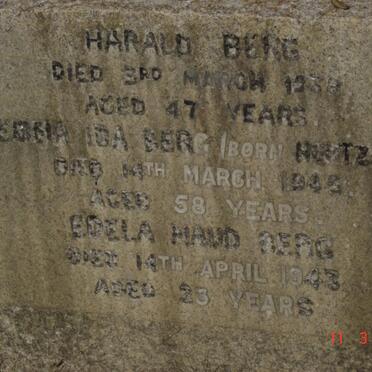 HARALD BERG
DIED 3RD MARCH 1938
AGED 47 YEARS
EBBA IDA BERG (BORN
DIED 14TH MARCH 1945
AGED 58 YEARS.
EDELA MAUD BERG
DIED 14TH APRIL 1943
AGED 23 YEARS
11 3